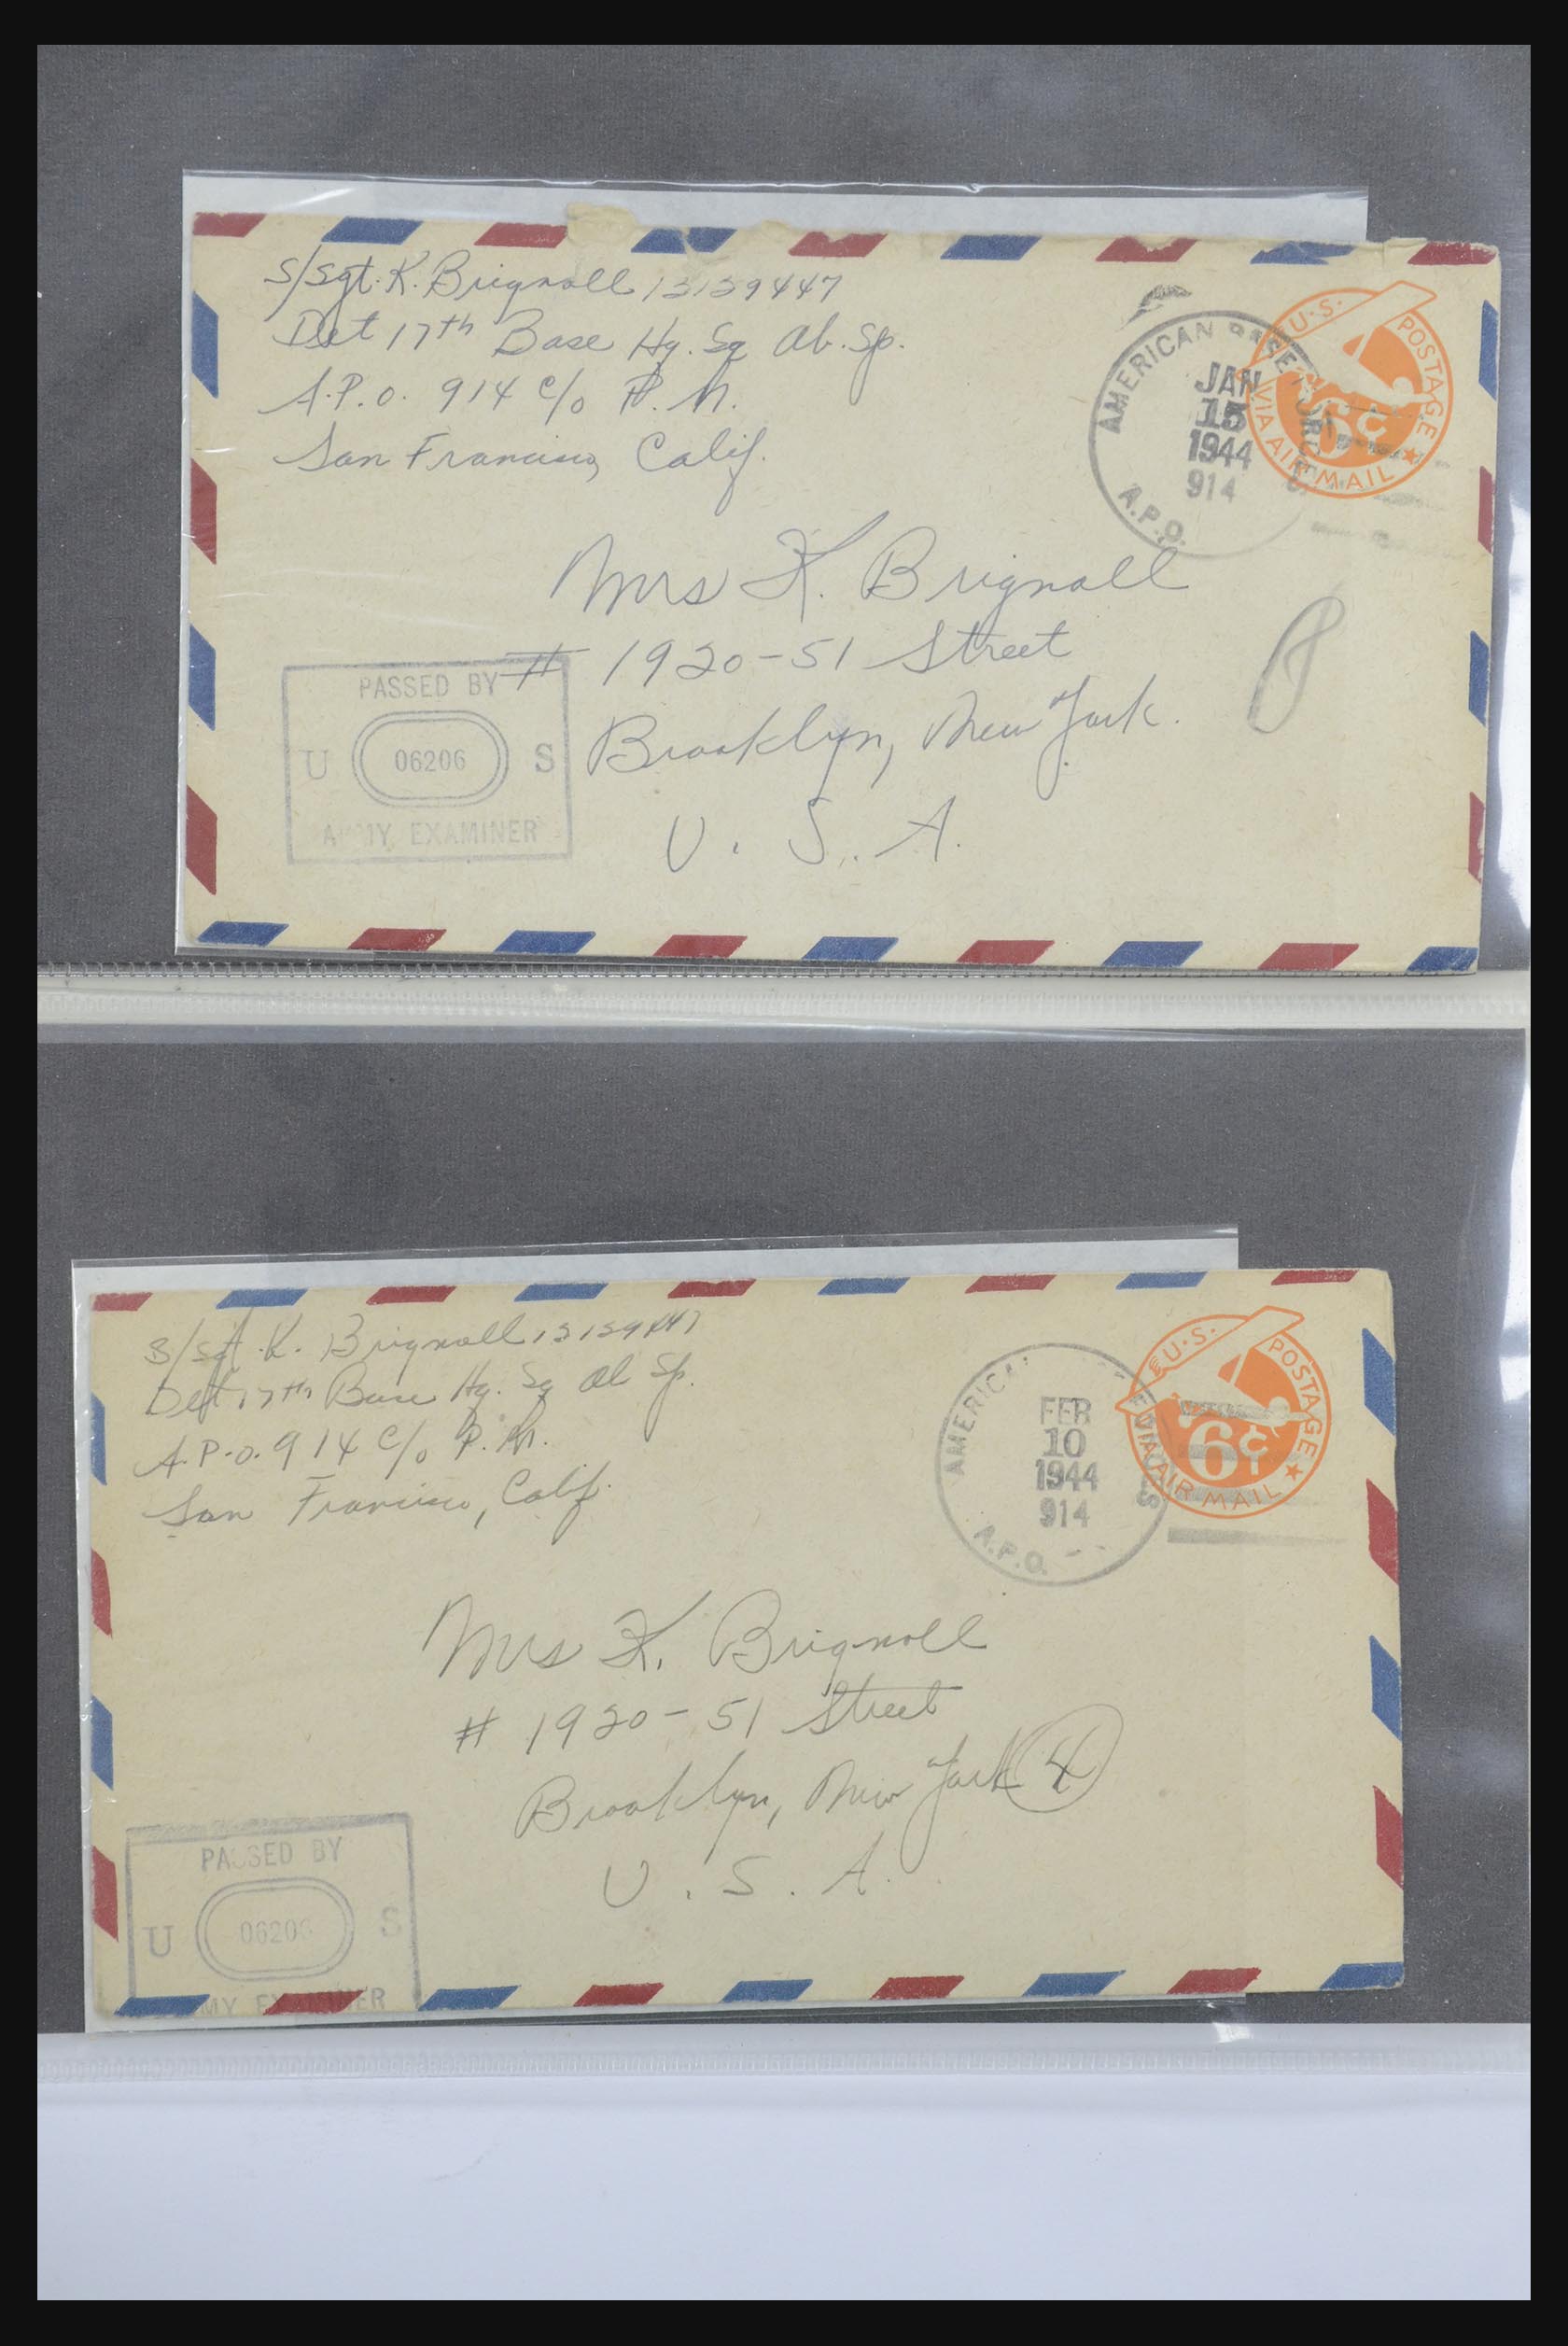 S/Sgt. K. Brignall 13139447
Det 17th Base Hq. Sq Ab. Sp.
A.P.O. 914 c/o P. M.
San Francisco, Calif.
AMERICAN BASE FORCES
A.P.O.
JAN
15
1944
914
U.S. POSTAGE
6¢
VIA AIR MAIL
Mrs K. Brignall
# 1920-51 Street
Brooklyn, New York.
U. S. A.
PASSED BY
U 06206 S
ARMY EXAMINER
S/Sgt. K. Brignall 13139447
Det 17th Base Hq. Sq Ab Sp.
A.P.O. 914 c/o P. M.
San Francisco, Calif.
AMERICA
A.P.O.
FEB
10
1944
914
U.S. POSTAGE
6¢
VIA AIR MAIL
Mrs K. Brignall
# 1920-51 Street
Brooklyn, New York 4
U. S. A.
PASSED BY
U 06206 S
MY EXAMINER